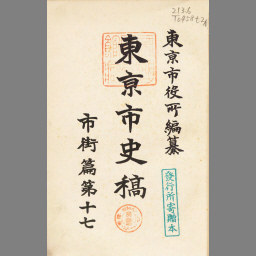 東京市役所編纂
東京市史稿
市街篇第十七
發行所寄贈本